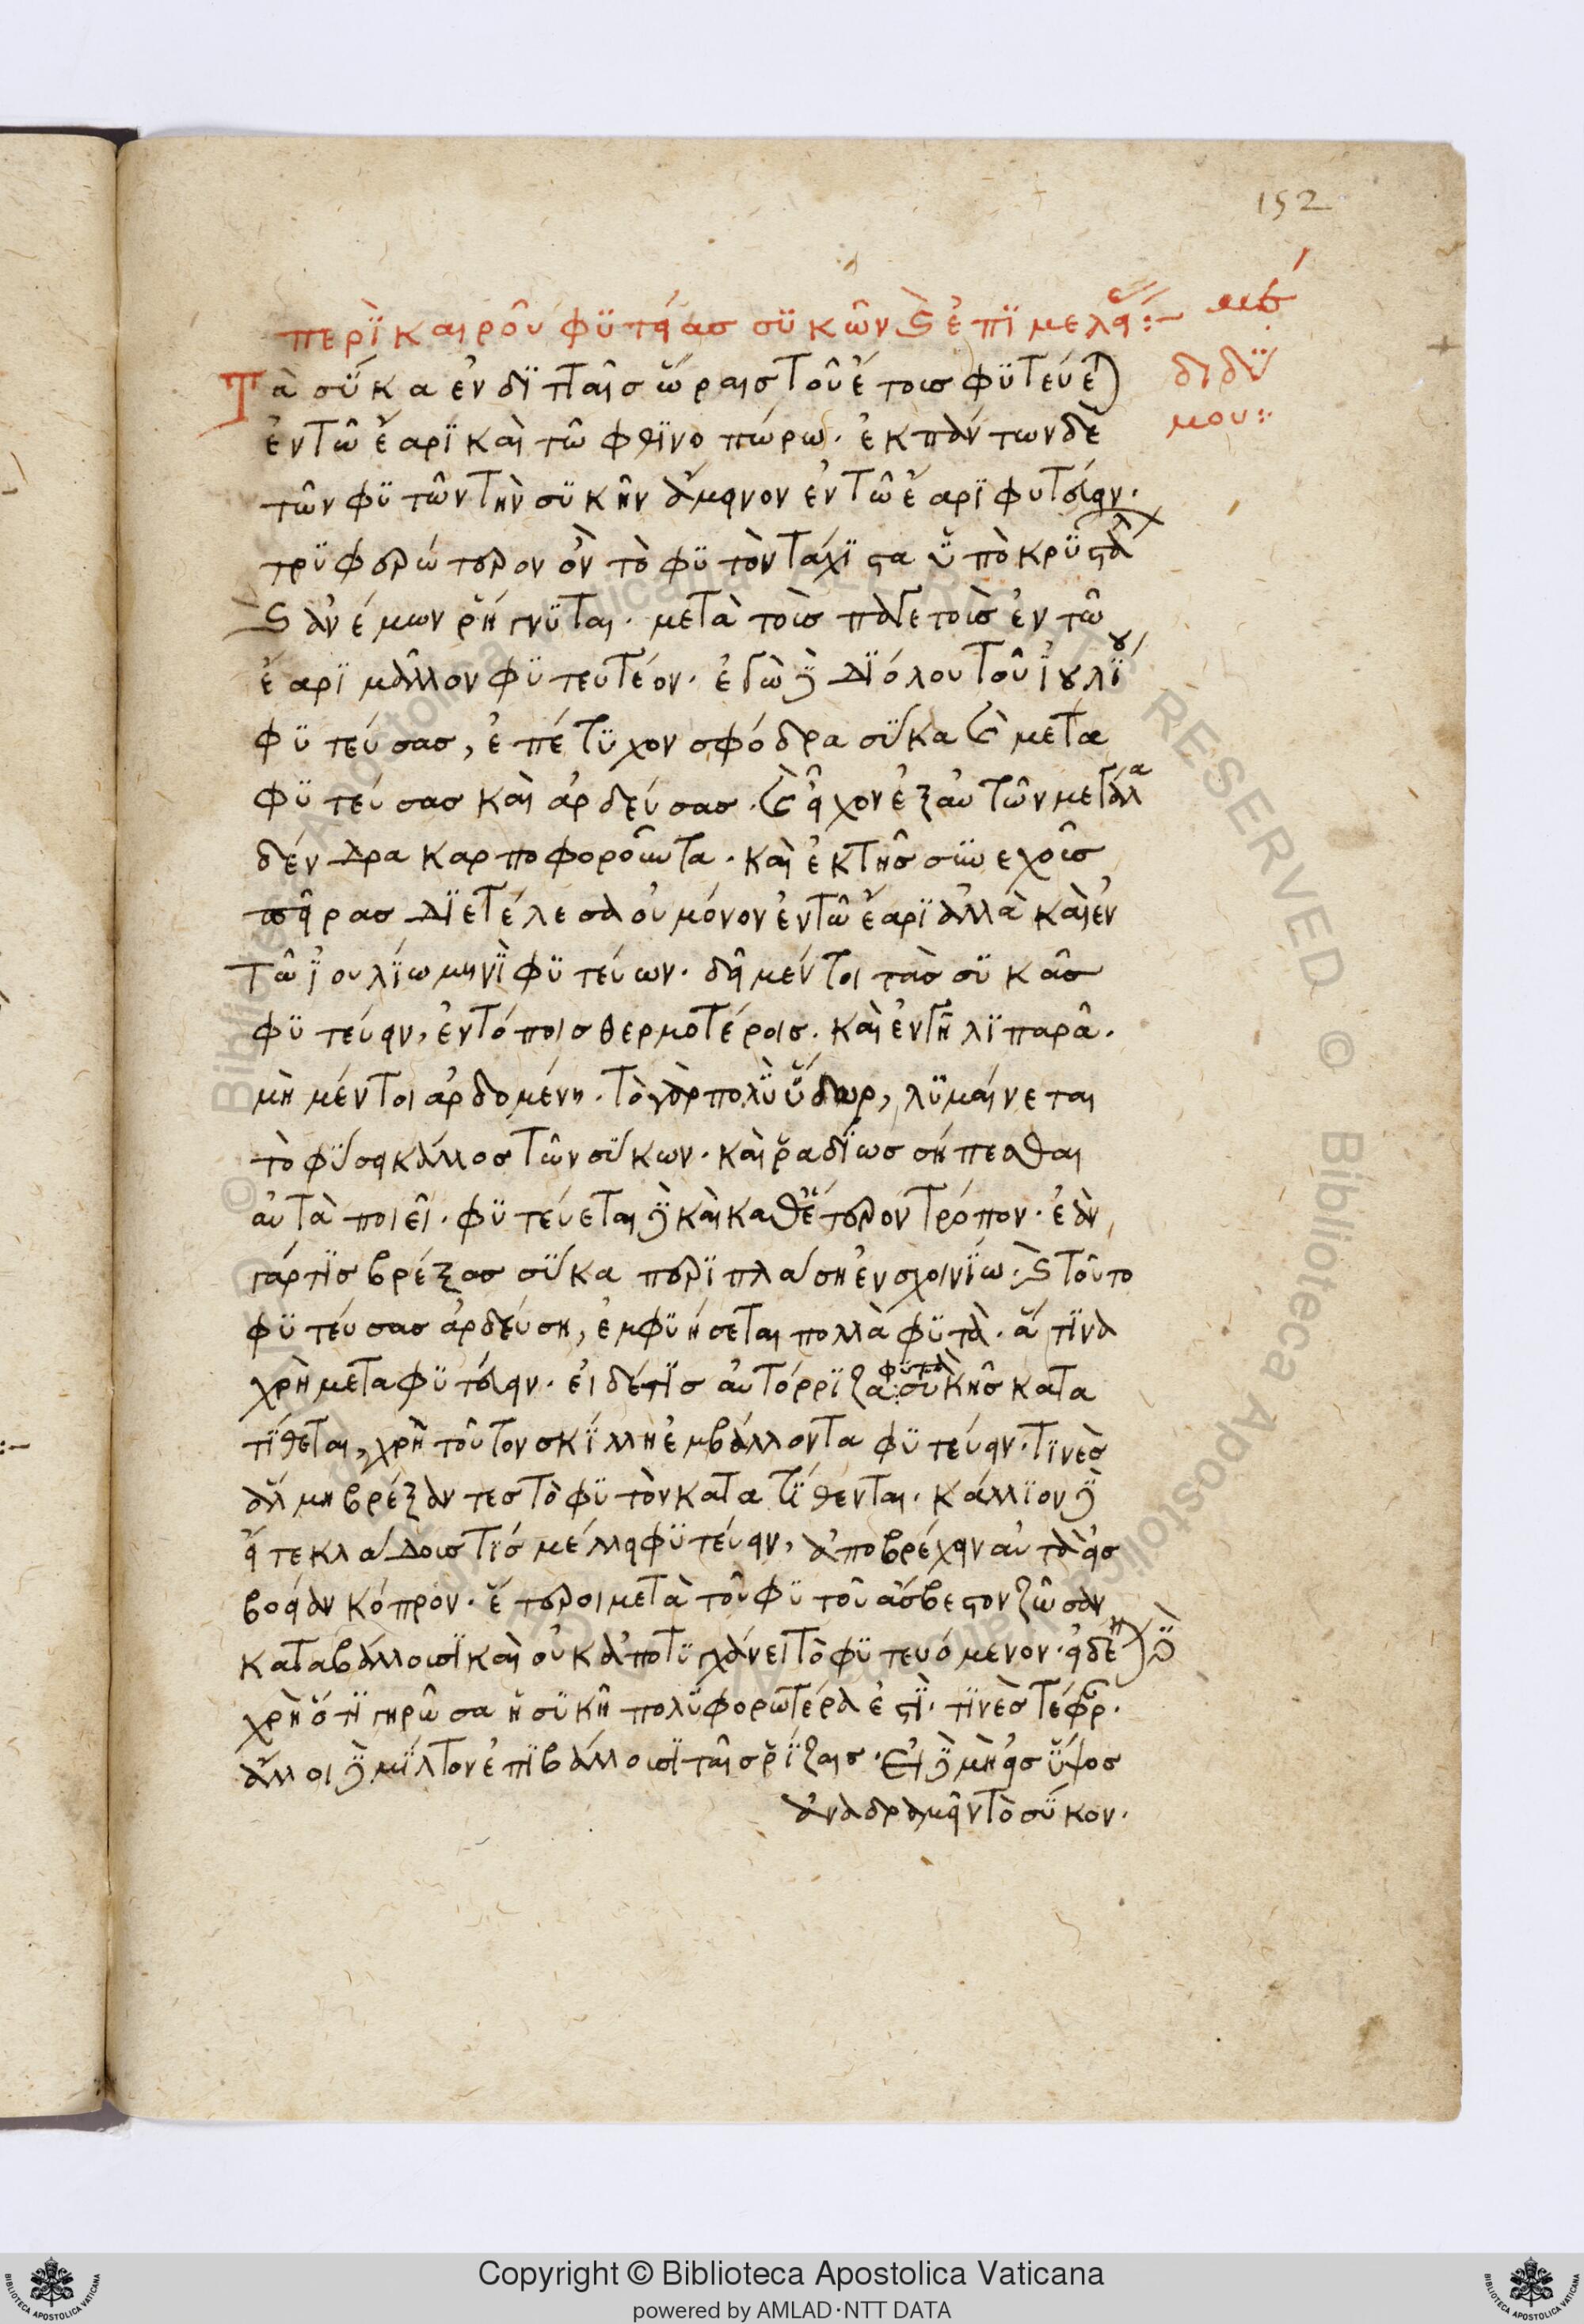 152
περὶ καιροῦ φυτείας συκῶν καὶ ἐπιμελείας:– με΄
Τὰ σύκα ἐν διτταῖς ὥραις τοῦ ἔτους φυτεύεται διδύ
ἐν τῶ ἔαρι καὶ τῶ φθινοπώρω. ἐκ πάντων δὲ μου:
τῶν φυτῶν τὴν συκῆν ἄμεινον ἐν τῶ ἔαρι φυτεύειν.
τρυφερώτερον ὂν τὸ φυτὸν τάχιστα ὑπὸ κρυστάλλων
καὶ ἀνέμων ῥήγνυται. μετὰ τοὺς παγετοὺς ἐν τῶ
ἔαρι μᾶλλον φυτευτέον. ἐγὼ δὲ δι όλου τοῦ ἰουλίου
φυτεύσας, ἐπέτυχον σφόδρα σύκα καὶ μετα
φυτεύσας καὶ ἀρδεύσας. καὶ εἶχον ἐξ αὐτῶν μεγάλα
δένδρα καρποφοροῦντα. καὶ ἐκ τῆς συνεχοῦς
πείρας διετέλεσα οὐ μόνον ἐν τῶ ἔαρι ἀλλὰ καὶ ἐν
τῶ ἰουλίω μηνὶ φυτεύων. δεῖ μέντοι τὰς συκᾶς
φυτεύειν, ἐν τόποις θερμοτέροις. καὶ ἐν γῆ λιπαρᾶ.
μὴ μέντοι ἀρδομένη. τὸ γὰρ πολὺ ὕδωρ, λυμαίνεται
τὸ φύσει κάλλος τῶν σύκων. καὶ ῥαδίως σήπεσθαι
αὐτὰ ποιεῖ. φυτεύεται δὲ καὶ καθ ἕτερον τρόπον. ἐὰν
γάρ τις βρέξας σύκα περιπλάση ἐν σχοινίω. καὶ τοῦτο
φυτεύσας ἀρδεύση, ἐμφυήσεται πολλὰ φυτὰ. ἅτινα
χρὴ μεταφυτεύειν. εἰ δέ τις αὐτόρριζα φυτὰ συκῆς κατα
τίθεται, χρὴ τοῦτον σκίλλη ἐμβάλλοντα φυτεύειν. τινὲς
ἅλμη βρέξαντες τὸ φυτὸν κατατίθενται. κάλλιον δὲ
εἴτε κλάδοις τίς μέλλει φυτεύειν, ἀποβρέχειν αὐτὰ εἰς
βοείαν κόπρον. ἕτεροι μετὰ τοῦ φυτοῦ ἄσβεστον ζῶσαν
καταβάλλουσι καὶ οὐκ ἀποτυγχάνει τὸ φυτευόμενον. εἰδέναι δὲ
χρὴ ὅτι γηρῶσα ἡ συκῆ πολυφορωτέρα ἐστὶ. τινὲς τέφραν.
ἄλλοι δὲ μίλτον ἐπιβάλλουσι ταῖς ῥίζαις. Εἰ δὲ μὴ εἰς ὕψος
ἀναδραμεῖν τὸ σύκον.
Copyright © Biblioteca Apostolica Vaticana
powered by AMLAD·NTT DATA